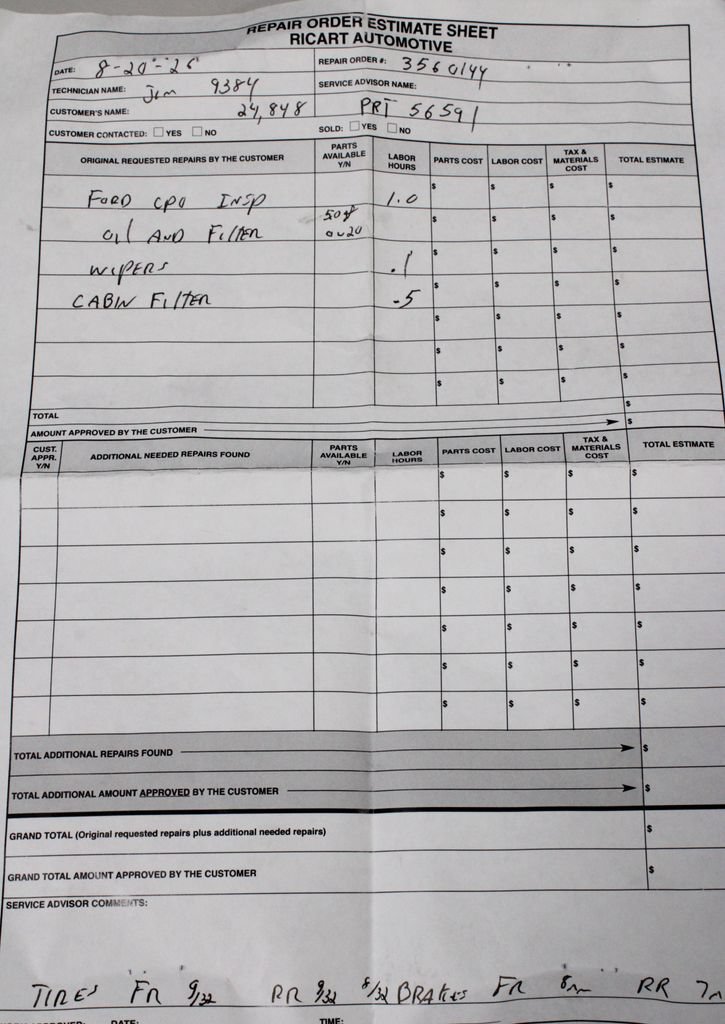 REPAIR ORDER ESTIMATE SHEET
RICART AUTOMOTIVE
DATE: 8-20-25 REPAIR ORDER #: 3560144
TECHNICIAN NAME: Jim 9384 SERVICE ADVISOR NAME:
CUSTOMER'S NAME: 24,848 PRT 56591
CUSTOMER CONTACTED: YES NO SOLD: YES NO
ORIGINAL REQUESTED REPAIRS BY THE CUSTOMER PARTS AVAILABLE Y/N LABOR HOURS PARTS COST LABOR COST TAX & MATERIALS COST TOTAL ESTIMATE
FORD CPO INSP 1.0 $ $ $ $
OIL AND FILTER 0W20 $ $ $ $
WIPERS .1 $ $ $ $
CABIN FILTER .5 $ $ $ $
$ $ $ $
$ $ $ $
$ $ $ $
TOTAL $
AMOUNT APPROVED BY THE CUSTOMER $
CUST. APPR. Y/N ADDITIONAL NEEDED REPAIRS FOUND PARTS AVAILABLE Y/N LABOR HOURS PARTS COST LABOR COST TAX & MATERIALS COST TOTAL ESTIMATE
$ $ $ $
$ $ $ $
$ $ $ $
$ $ $ $
$ $ $ $
$ $ $ $
$ $ $ $
TOTAL ADDITIONAL REPAIRS FOUND $
TOTAL ADDITIONAL AMOUNT APPROVED BY THE CUSTOMER $
GRAND TOTAL (Original requested repairs plus additional needed repairs) $
GRAND TOTAL AMOUNT APPROVED BY THE CUSTOMER $
SERVICE ADVISOR COMMENTS:
TIRES FR 9/32 RR 9/32 8/32 BRAKES FR 8mm RR 7m
DATE: TIME: